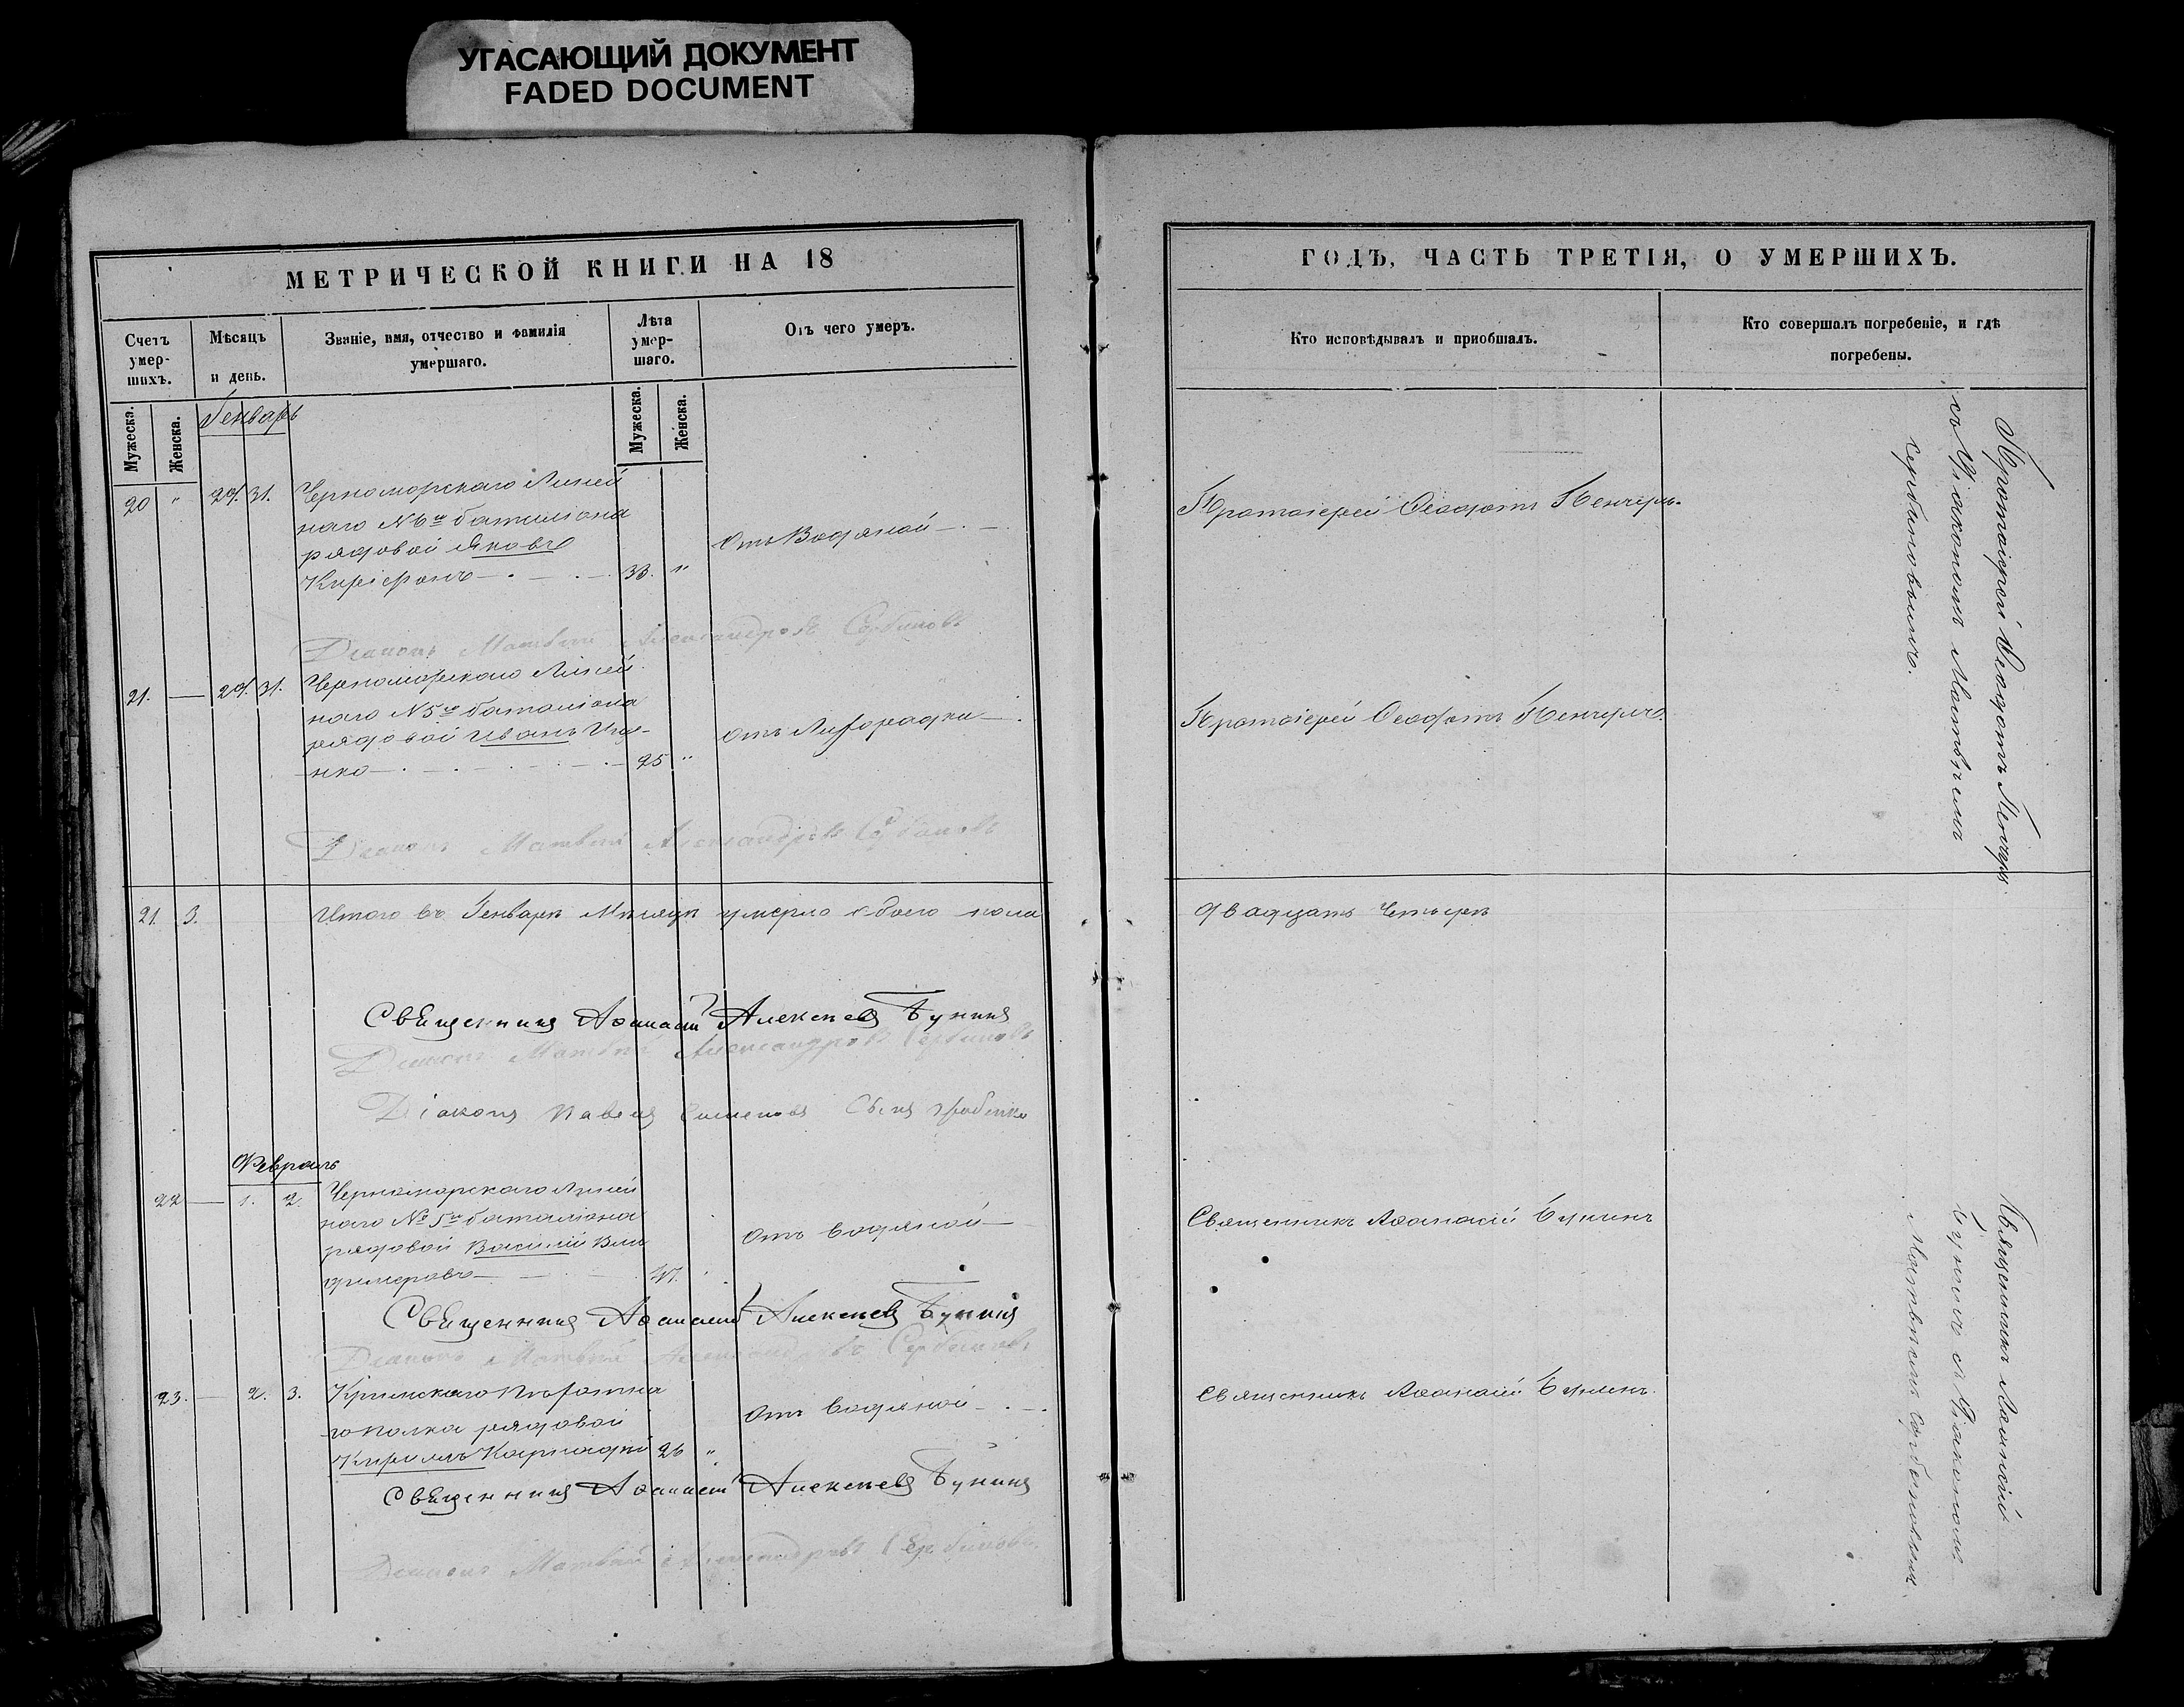 УГАСАЮЩИЙ ДОКУМЕНТ
FADED DOCUMENT
МЕТРИЧЕСКОЙ КНИГИ НА 18
Счетъ умер-шихъ.
Мужеска.
Женска.
Мѣсяцъ и день.
Званіе, имя, отчество и фамилія
умершаго.
Лѣта умер-шаго.
Мужеска.
Женска.
Отъ чего умеръ.
Генварь
20 " 29. 31. Черноморскаго Линей
наго № 6го баталіона
рядовой Яковъ
33. "
отъ Водяной
Діаконъ Матвей Александровъ Сербиновъ
21. — 29. 31. Черноморскаго Линей
наго № 5го баталіона
рядовой Иванъ
нко 25 "
отъ Лихорадки
Діаконъ Матвей Александровъ Сербиновъ
21. 3. Итого въ Генварѣ Мѣсяцѣ умерло обоего пола
Священникъ Афанасій Алексѣевъ Бунинъ
Діаконъ Матвей Александровъ Сербиновъ
Діаконъ Павелъ Сынъ
Февраль
22 — 1. 2. Черноморскаго Линей
наго № 5го баталіона
рядовой Василій Вла
димеровъ 41.
отъ водяной
Священникъ Афанасій Алексѣевъ Бунинъ
Діаконъ Матвей Александровъ Сербиновъ
23. — 2. 3. Крымскаго Пѣхотна
го полка рядовой
Кирилъ 26 "
отъ водяной
Священникъ Афанасій Алексѣевъ Бунинъ
Діаконъ Матвей Александровъ Сербиновъ
ГОДЪ, ЧАСТЬ ТРЕТІЯ, О УМЕРШИХЪ.
Кто исповѣдывалъ и приобщалъ.
Кто совершалъ погребеніе, и гдѣ
погребены.
Протоіерей Феодотъ Пенчулъ.
Протоіерей Феодотъ Пенчулъ.
Протоіерей Феодотъ Пенчулъ
съ Діакономъ Матвѣемъ
Сербиновымъ.
двадцать четыре
Священникъ Афанасій Бунинъ
Священникъ Афанасій Бунинъ.
Священникъ Афанасій
Бунинъ съ Діакономъ
Матвѣемъ Сербиновымъ